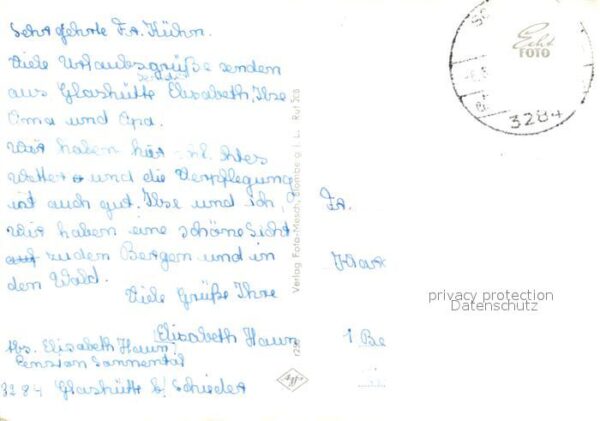 Sehr geehrte Fr. Kühn.
Viele Urlaubsgrüße senden
aus Glashütte Elisabeth, Ilse
Oma und Opa.
Wir haben hier
Wetter und die Verpflegung
ist auch gut. Ilse und ich,
wir haben eine schöne Sicht
auf zu den Bergen und in
den Wald.
Viele Grüße Ihre
Elisabeth
Abs. Elisabeth
Pension Sonnental
3284 Glashütte b/ Schieder
Verlag Foto-Mesch, Blomberg i. L. Ruf 308
Agfa
Echt
FOTO
3284
Fr.
1 Be
privacy protection
Datenschutz